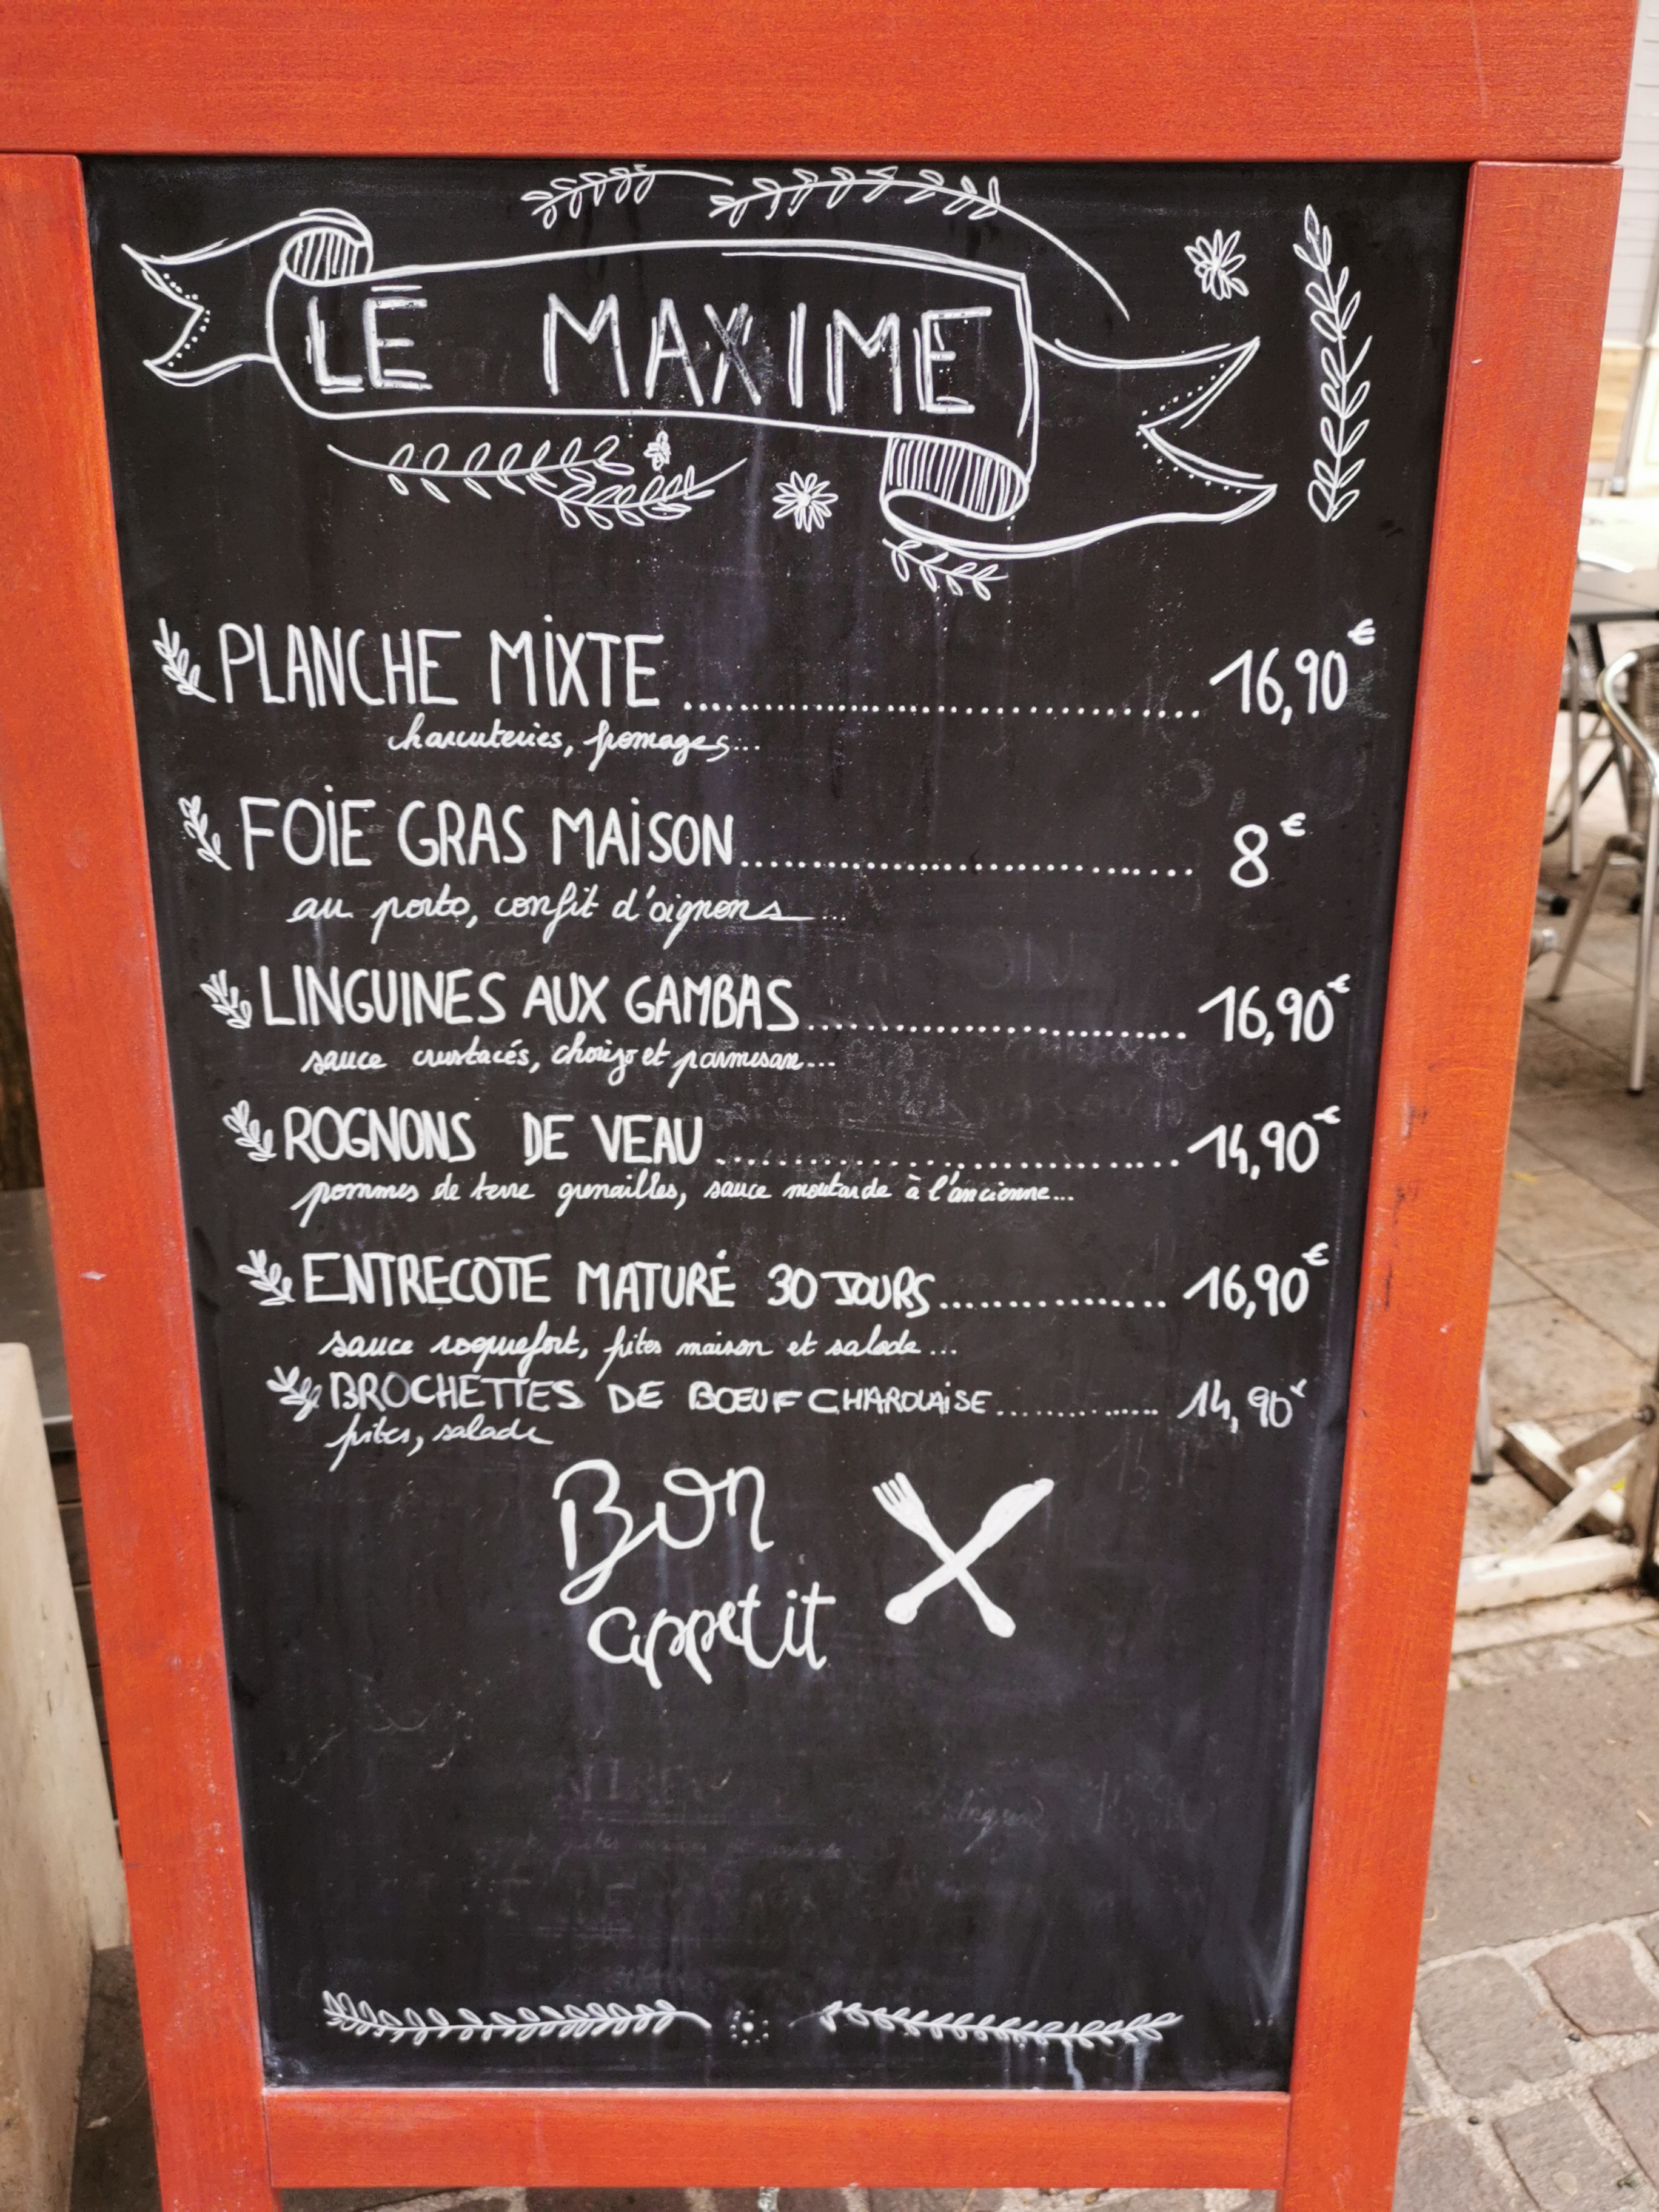 LE MAXIME
PLANCHE MIXTE ........................ 16,90€
charcuteries, fromages...
FOIE GRAS MAISON ........................ 8€
au porto, confit d'oignons...
LINGUINES AUX GAMBAS ........................ 16,90€
sauce crustacés, chorizo et parmesan...
ROGNONS DE VEAU ........................ 14,90€
pommes de terre grenailles, sauce moutarde à l'ancienne...
ENTRECOTE MATURÉ 30 JOURS ................ 16,90€
sauce roquefort, frites maison et salade...
BROCHETTES DE BOEUF CHAROLAISE ............ 14,90€
frites, salade
Bon
appetit